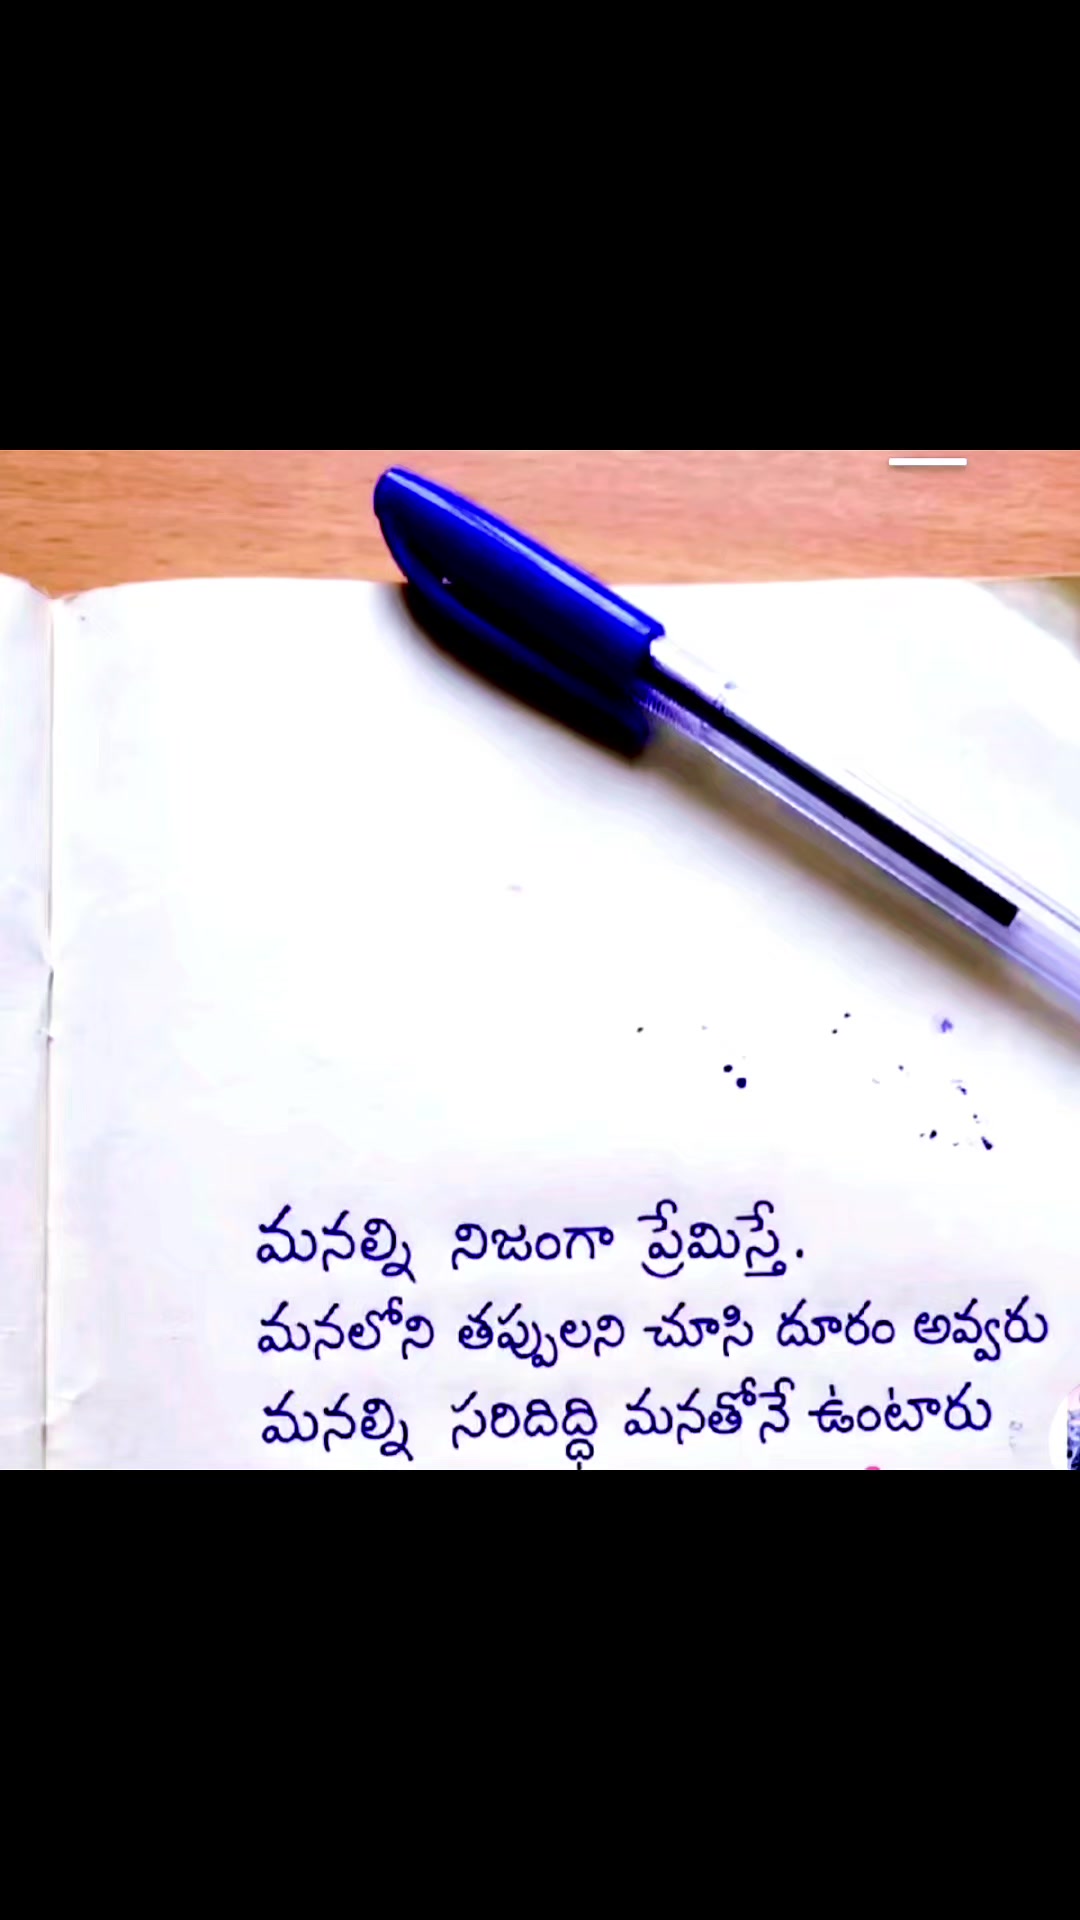 మనల్ని నిజంగా ప్రేమిస్తే.
మనలోని తప్పులని చూసి దూరం అవ్వరు
మనల్ని సరిదిద్ధి మనతోనే ఉంటారు